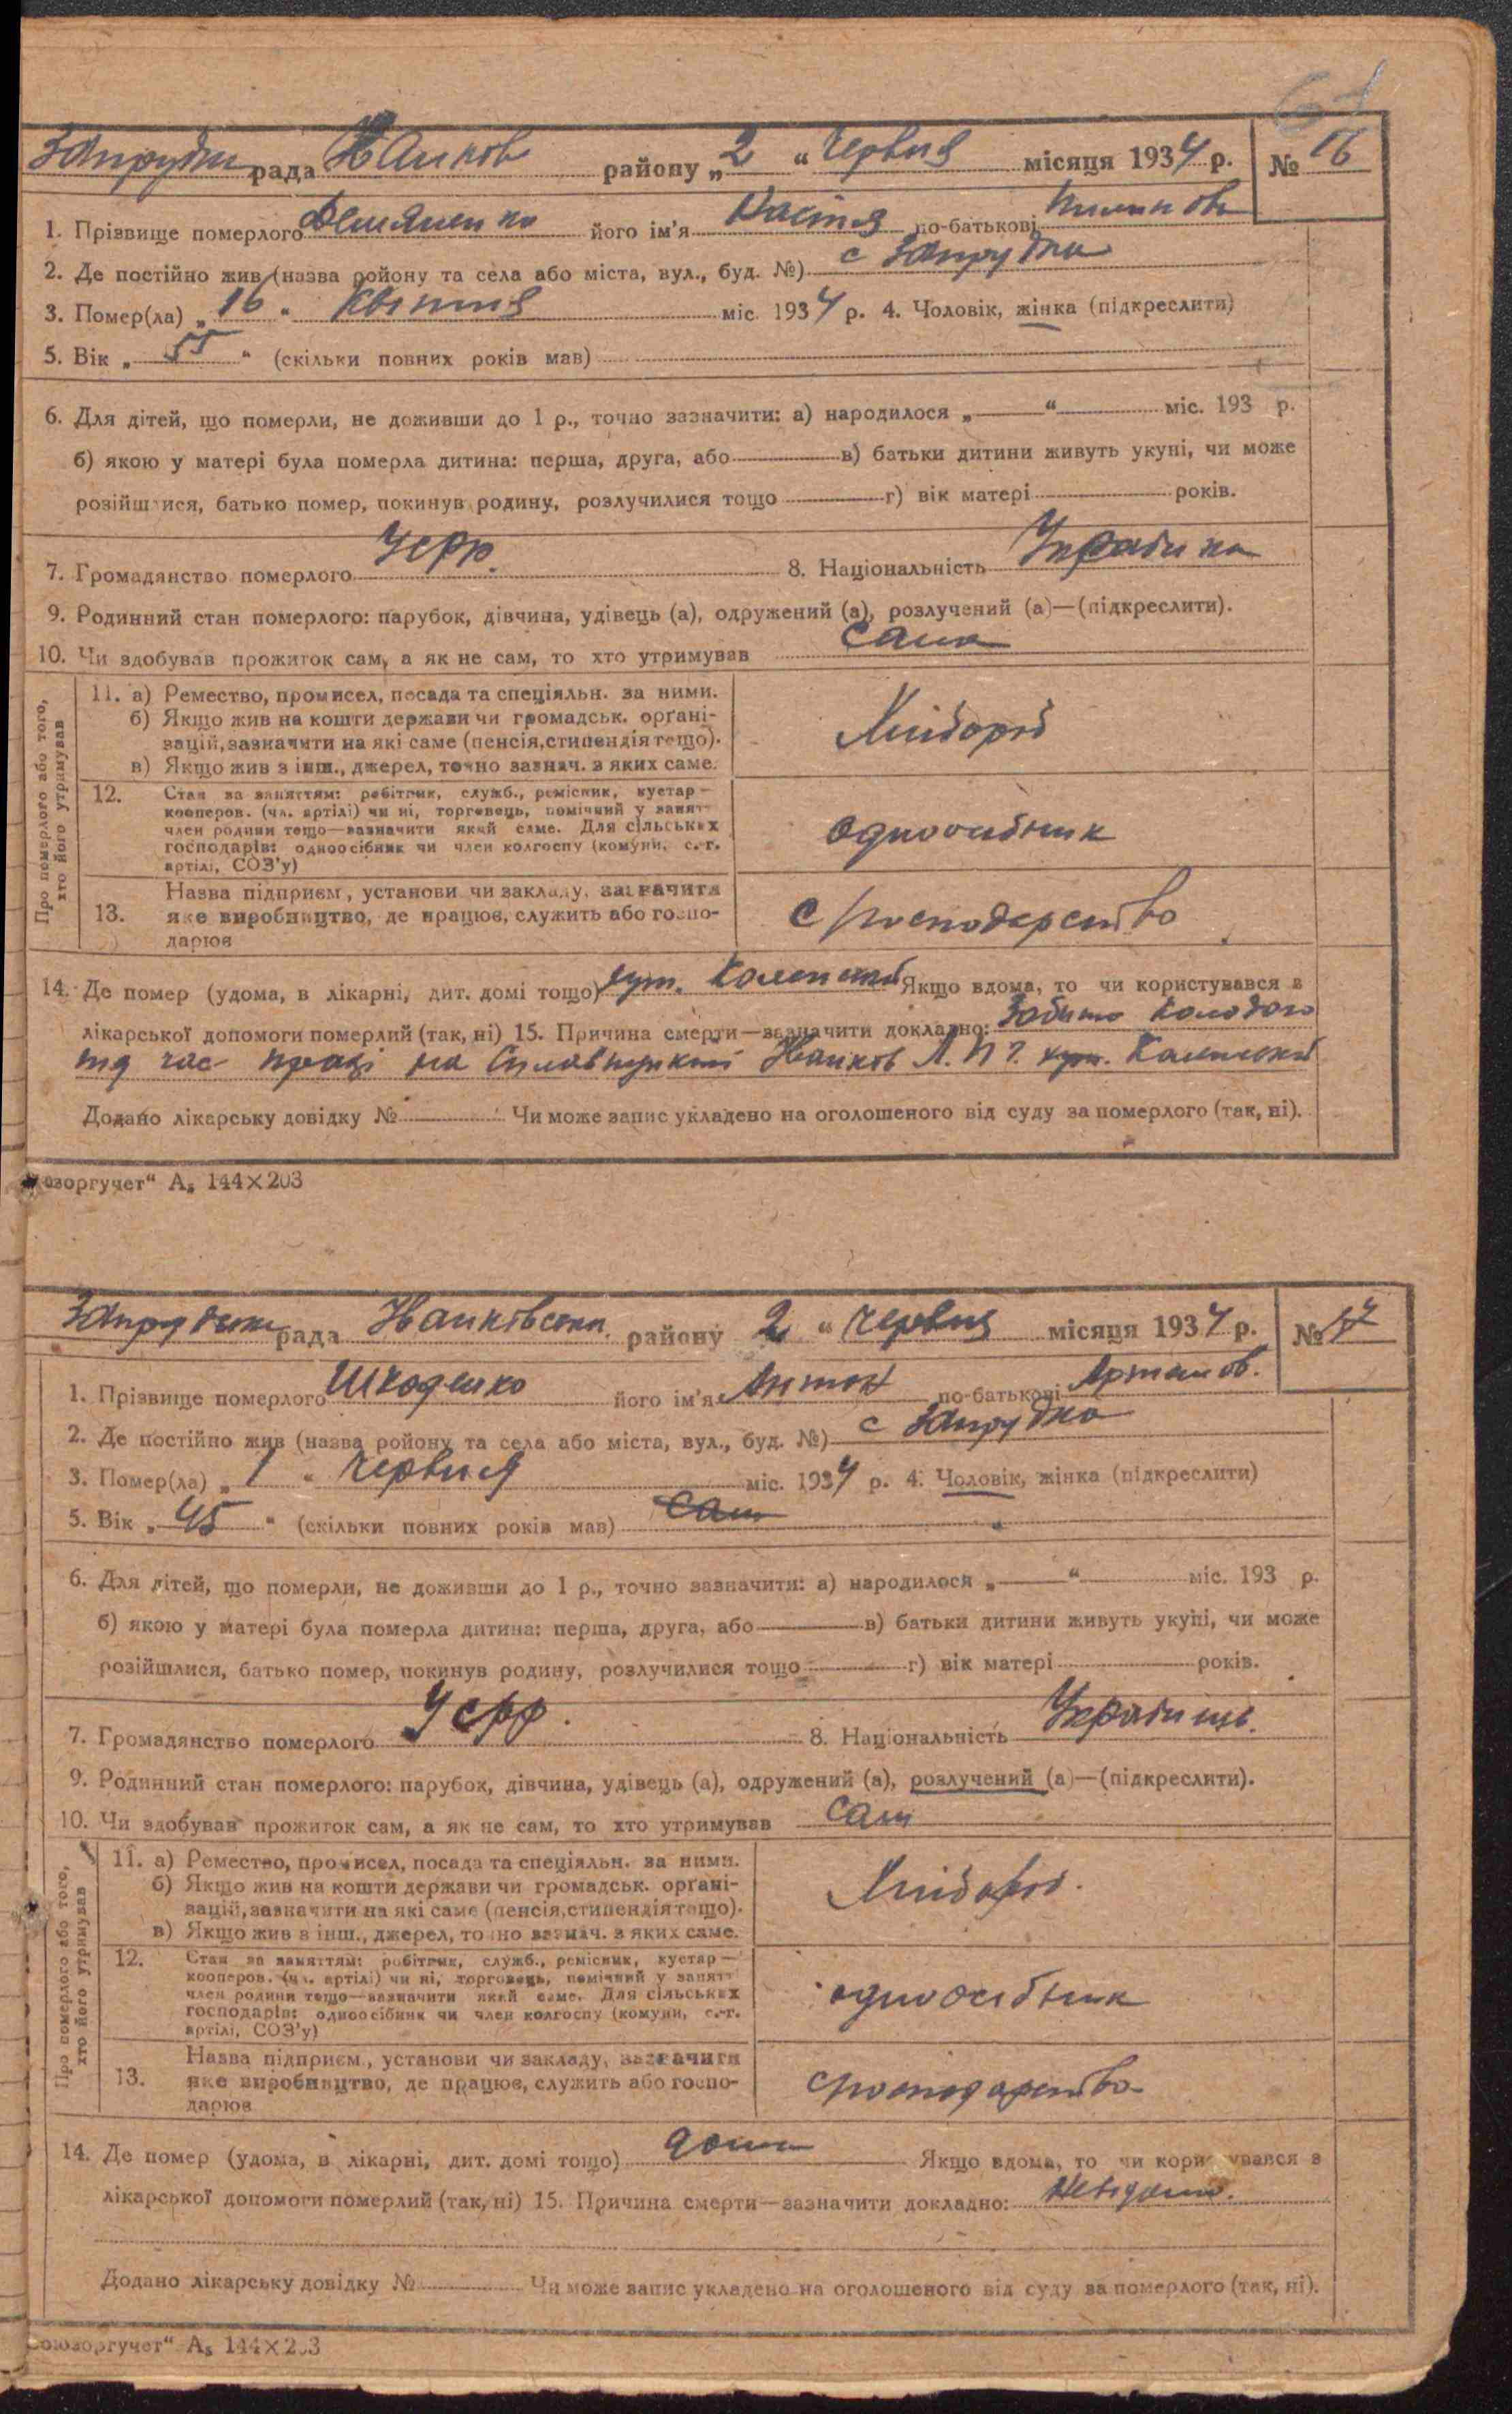 61
Запрудська рада Іванков району „2“ червня місяця 1934 р. № 16
1. Прізвище померлого Демяненко його ім'я Настя по-батькові
2. Де постійно жив (назва ройону та села або міста, вул., буд. №) с Запрудка
3. Помер(ла) „16“ квітня міс. 1934 р. 4. Чоловік, жінка (підкреслити)
5. Вік „55“ (скільки повних років мав)
6. Для дітей, що померли, не доживши до 1 р., точно зазначити: а) народилося „ “ міс. 193 р.
б) якою у матері була померла дитина: перша, друга, або в) батьки дитини живуть укупі, чи може
розійшлися, батько помер, покинув родину, розлучилися тощо г) вік матері років.
7. Громадянство померлого УСРР. 8. Національність Українка
9. Родинний стан померлого: парубок, дівчина, удівець (а), одружений (а), розлучений (а)—(підкреслити).
10. Чи здобував прожиток сам, а як не сам, то хто утримував сама
Про померлого або того, хто його утримував
11. а) Ремество, промисел, посада та спеціяльн. за ними.
б) Якщо жив на кошти держави чи громадськ. орґані-
зацій, зазначити на які саме (пенсія, стипендія тощо).
в) Якщо жив з інш., джерел, точно зазнач. з яких саме.
Хлібороб
12. Стан за заняттям: робітник, служб., ремісник, кустар—
кооперов. (чл. артілі) чи ні, торговець, помічний у занят
член родини тощо—зазначити який саме. Для сільських
господарів: одноосібник чи член колгоспу (комуни, с.-г.
артілі, СОЗ'у)
одноосібник
Назва підприєм., установи чи закладу, зазначити
13. яке виробництво, де працює, служить або госпо-
дарює
с господарство
14. Де помер (удома, в лікарні, дит. домі тощо) хут. Каленський Якщо вдома, то чи користувався з
лікарської допомоги померлий (так, ні) 15. Причина смерти—зазначити докладно: Забито колодою
під час праці на Іванков Л. П. хут. Каленський
Додано лікарську довідку № Чи може запис укладено на оголошеного від суду за померлого (так, ні).
озоргучет“ А₅ 144×203
Запрудська рада Іванківськ. району 2 “ червня місяця 1934 р. № 17
1. Прізвище померлого Шкоденко його ім'я Антон по-батькові Артемов.
2. Де постійно жив (назва ройону та села або міста, вул., буд. №) с Запрудка
3. Помер(ла) „1“ червня міс. 1934 р. 4. Чоловік, жінка (підкреслити)
5. Вік „45“ (скільки повних років мав) сам
6. Для дітей, що померли, не доживши до 1 р., точно зазначити: а) народилося „ “ міс. 193 р.
б) якою у матері була померла дитина: перша, друга, або в) батьки дитини живуть укупі, чи може
розійшлися, батько помер, покинув родину, розлучилися тощо г) вік матері років.
7. Громадянство померлого УСРР. 8. Національність Українець.
9. Родинний стан померлого: парубок, дівчина, удівець (а), одружений (а), розлучений (а)—(підкреслити).
10. Чи здобував прожиток сам, а як не сам, то хто утримував сам
Про померлого або того, хто його утримував
11. а) Ремество, промисел, посада та спеціяльн. за ними.
б) Якщо жив на кошти держави чи громадськ. орґані-
зацій, зазначити на які саме (пенсія, стипендія тощо).
в) Якщо жив з інш., джерел, точно зазнач. з яких саме.
Хлібороб.
12. Стан за заняттям: робітник, служб., ремісник, кустар—
кооперов. (чл. артілі) чи ні, торговець, помічний у занят
член родини тощо—зазначити який саме. Для сільських
господарів: одноосібник чи член колгоспу (комуни, с.-г.
артілі, СОЗ'у)
одноосібник
Назва підприєм., установи чи закладу, зазначити
13. яке виробництво, де працює, служить або госпо-
дарює
с господарство
14. Де помер (удома, в лікарні, дит. домі тощо) дома Якщо вдома, то чи користувався з
лікарської допомоги померлий (так, ні) 15. Причина смерти—зазначити докладно: Невідомо.
Додано лікарську довідку № Чи може запис укладено на оголошеного від суду за померлого (так, ні).
оюзоргучет“ А₅ 144×203